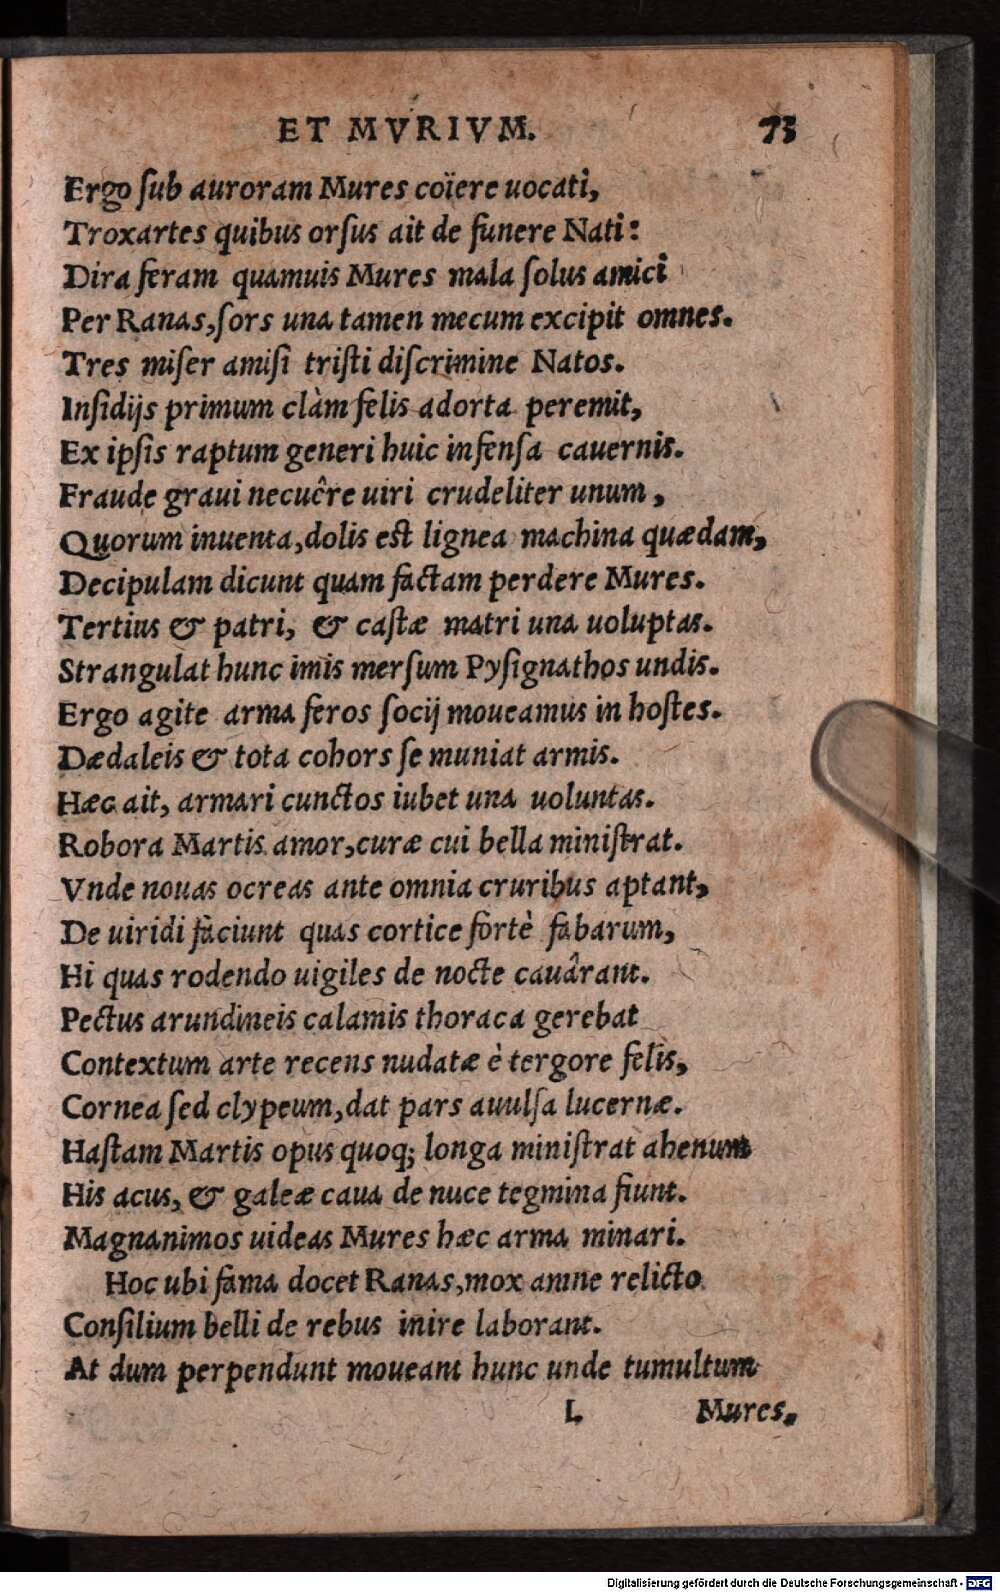 ET MVRIVM. 73
Ergo ſub auroram Mures coïere uocati,
Troxartes quibus orſus ait de funere Nati:
Dira feram quamuis Mures mala ſolus amici
Per Ranas, ſors una tamen mecum excipit omnes.
Tres miſer amiſi triſti diſcrimine Natos.
Inſidijs primum clàm felis adorta peremit,
Ex ipſis raptum generi huic infenſa cauernis.
Fraude graui necuêre uiri crudeliter unum,
Quorum inuenta, dolis eſt lignea machina quædam,
Decipulam dicunt quam factam perdere Mures.
Tertius & patri, & caſtæ matri una uoluptas.
Strangulat hunc imis merſum Pyſignathos undis.
Ergo agite arma feros ſocij moueamus in hoſtes.
Dædaleis & tota cohors ſe muniat armis.
Hæc ait, armari cunctos iubet una uoluntas.
Robora Martis amor, curæ cui bella miniſtrat.
Vnde nouas ocreas ante omnia cruribus aptant,
De uiridi faciunt quas cortice fortè fabarum,
Hi quas rodendo uigiles de nocte cauârant.
Pectus arundineis calamis thoraca gerebat
Contextum arte recens nudatæ è tergore felis,
Cornea ſed clypeum, dat pars auulſa lucernæ.
Haſtam Martis opus quoq; longa miniſtrat ahenum
His acus, & galeæ caua de nuce tegmina fiunt.
Magnanimos uideas Mures hæc arma minari.
Hoc ubi fama docet Ranas, mox amne relicto
Conſilium belli de rebus inire laborant.
At dum perpendunt moueant hunc unde tumultum
L Mures.
Digitalisierung gefördert durch die Deutsche Forschungsgemeinschaft - DFG